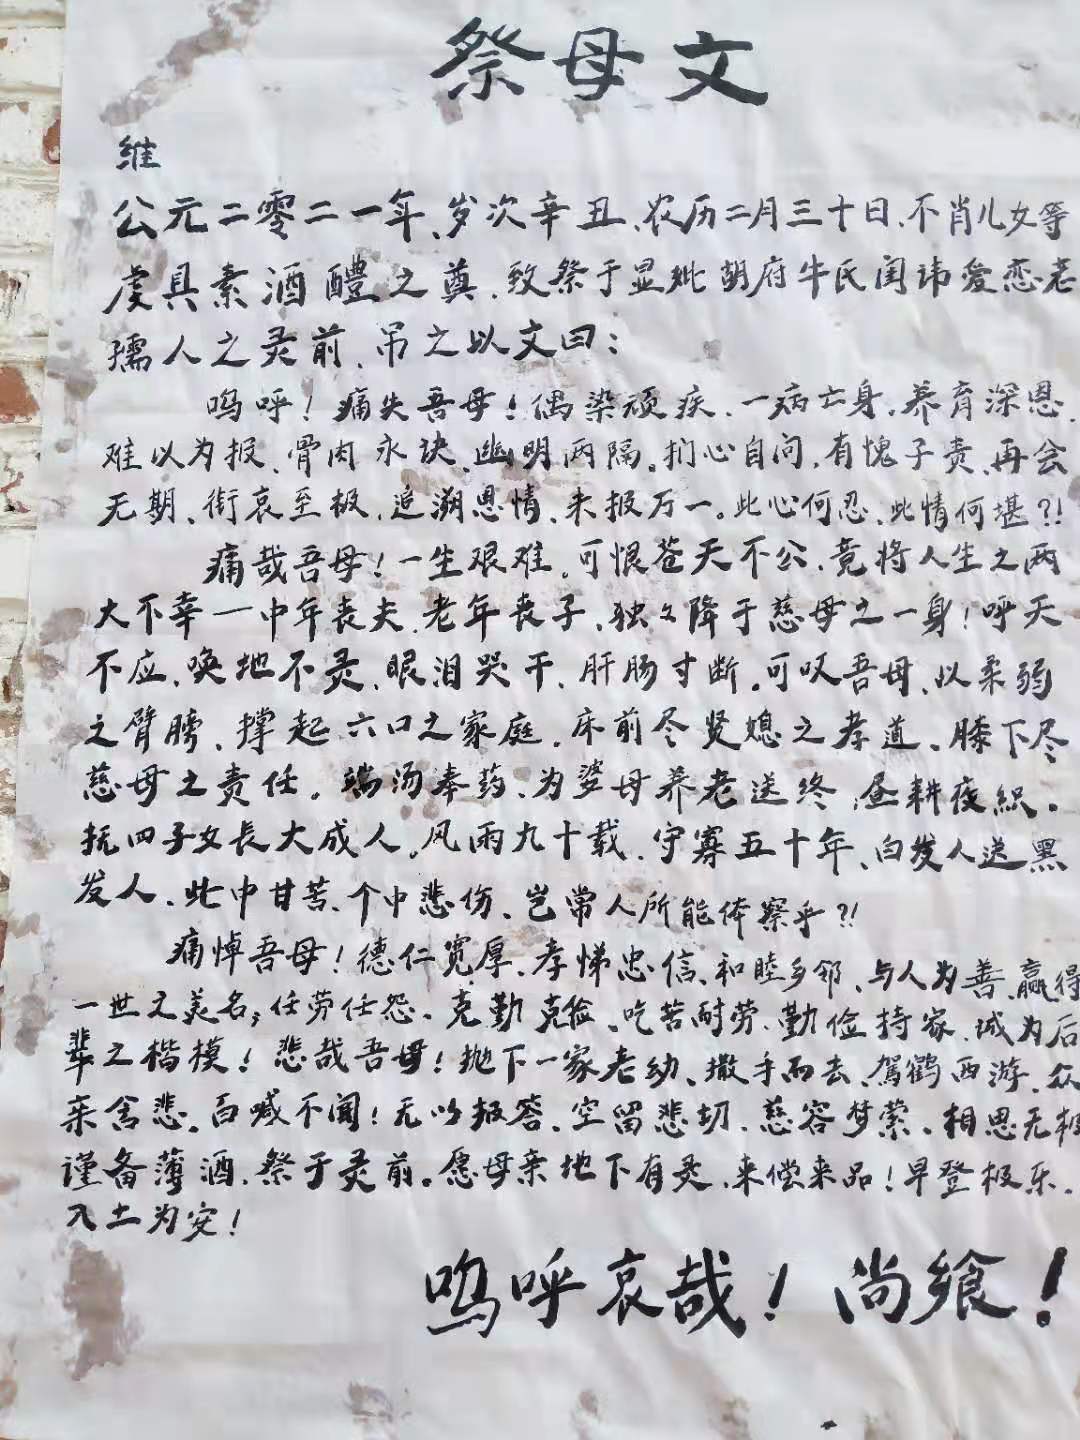 祭母文
维
公元二零二一年、岁次辛丑、农历二月三十日、不肖儿女等
虔具素酒醴之奠、致祭于显妣胡府牛氏闺讳爱恋老
孺人之灵前、吊之以文曰：
呜呼！痛失吾母！偶染顽疾、一病亡身、养育深恩、
难以为报、骨肉永诀、幽明两隔。扪心自问、有愧子责、再会
无期、衔哀至极、追溯恩情、未报万一。此心何忍、此情何堪？！
痛哉吾母！一生艰难。可恨苍天不公、竟将人生之两
大不幸一中年丧夫、老年丧子、独々降于慈母之一身！呼天
不应、唤地不灵、眼泪哭干、肝肠寸断。可叹吾母、以柔弱
之臂膀、撑起六口之家庭、床前尽贤媳之孝道、膝下尽
慈母之责任。端汤奉药、为婆母养老送终、昼耕夜織。
抚四子女長大成人。风雨九十载、守寡五十年、白发人送黑
发人、此中甘苦、个中悲伤、岂常人所能体察乎？！
痛悼吾母！德仁宽厚、孝悌忠信、和睦乡邻、与人为善、赢得
一世之美名；任劳任怨、克勤克俭、吃苦耐劳、勤俭持家、城为后
辈之楷模！悲哉吾母！抛下一家老幼、撒手而去、駕鹤西游、众
亲含悲、百喊不闻！无以报答、空留悲切、慈容梦萦、相思无极
谨备薄酒、祭于灵前。愿母亲地下有灵、来偿来品！早登极乐、
入土为安！
呜呼哀哉！尚飨！